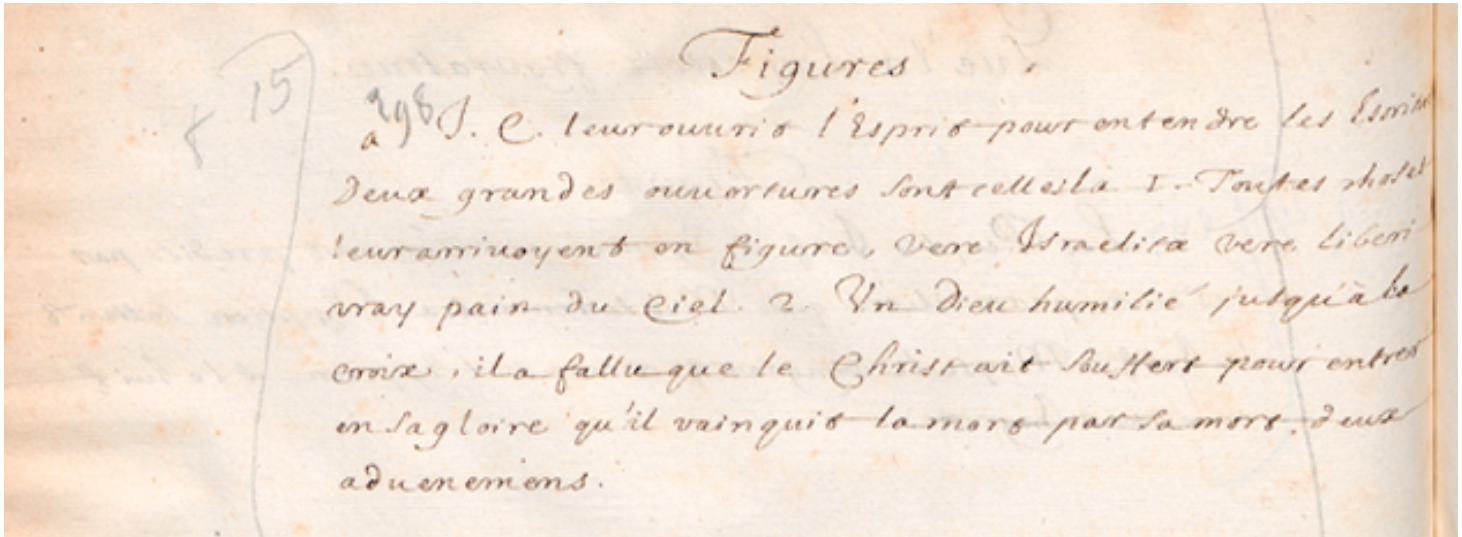 Figures
15
298
a J. C. leur ouurit l'Esprit pour entendre les Escrit
Deux grandes ouuertures sont celles la 1. Toutes choses
leur arriuoyent en figure, vere Israelitæ vere liberi
vray pain du Ciel. 2. Un Dieu humilié jusqu'à la
croix, il a fallu que le Christ ait souffert pour entrer
en sa gloire qu'il vainquit la mort par sa mort. deux
aduenemens.